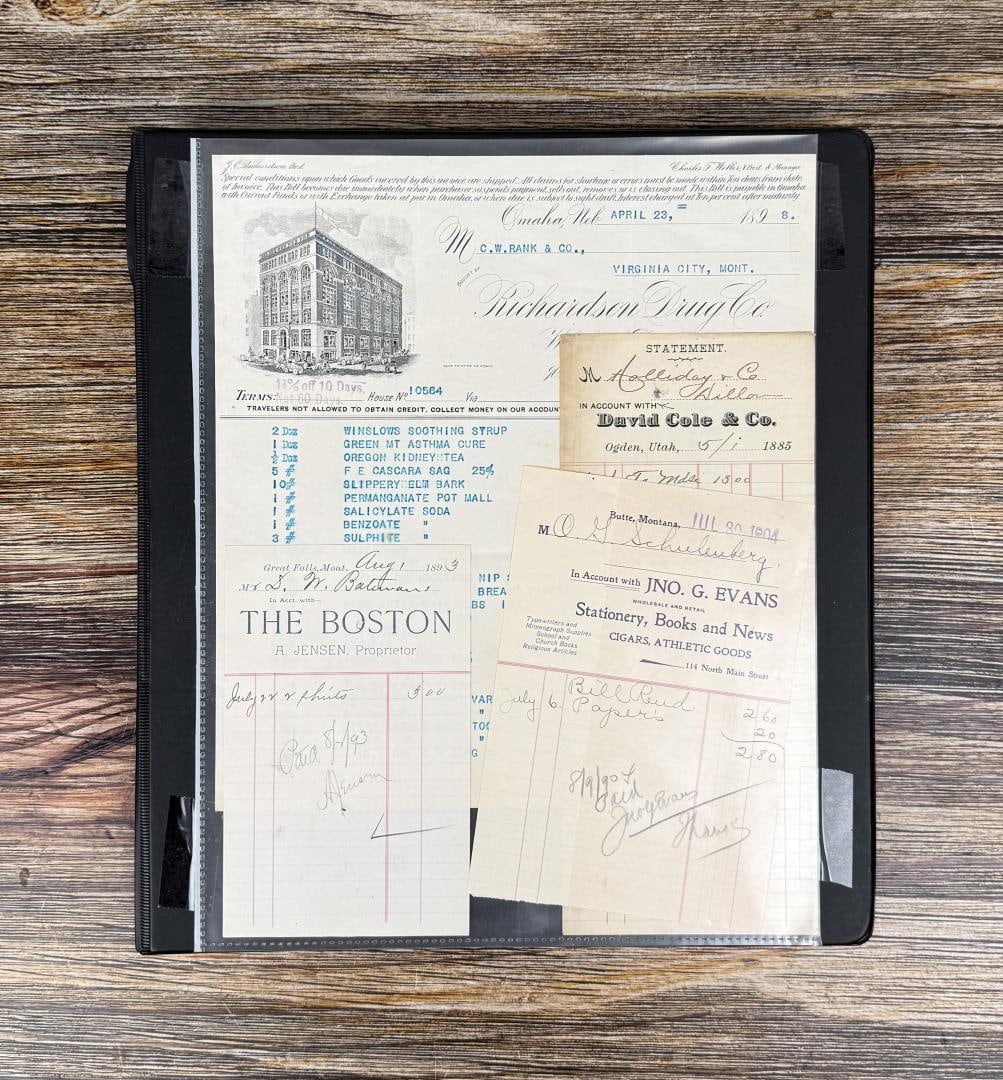 J. C. Richardson Prest. Charles F. Weller, V. Prest. & Manager
Special conditions upon which Goods covered by this invoice are shipped. All claims for shortage or errors must be made within Ten days from date
of Invoice. This Bill becomes due immediately when purchaser suspends payment, sells out, removes or is closing out. This Bill is payable in Omaha
with Current Funds or with Exchange taken at par in Omaha, or when due is subject to sight draft. Interest charged at Ten per cent after maturity
Omaha, Neb. APRIL 23, 1898.
M C.W.RANK & CO.,
VIRGINIA CITY, MONT.
BOUGHT OF
Richardson Drug Co.
1½% off 10 Days.
TERMS: Net 60 Days. House No 10564 Via
TRAVELERS NOT ALLOWED TO OBTAIN CREDIT, COLLECT MONEY ON OUR ACCOUN
2 Doz WINSLOWS SOOTHING SYRUP
1 Doz GREEN MT ASTHMA CURE
½ Doz OREGON KIDNEY TEA
5 # F E CASCARA SAG 25%
10# SLIPPERY ELM BARK
1 # PERMANGANATE POT MALL
1 # SALICYLATE SODA
1 # BENZOATE "
3 # SULPHITE "
NIP
BREA
BS
VAR
"
TO
G
STATEMENT.
M Holliday & Co
Dillon
IN ACCOUNT WITH
David Cole & Co.
Ogden, Utah, 5/1 1885
To Mdse 1300
Great Falls, Mont. Aug 1 1893
Mr D. W. Bateman
In Acct. with
THE BOSTON
A. JENSEN, Proprietor.
July 22 2 shirts 3 00
Paid 8/1/93
AJensen
Butte, Montana, JUL 30 1904
M O. G. Schulenberg.
In Account with JNO. G. EVANS
WHOLESALE AND RETAIL
Stationery, Books and News
CIGARS, ATHLETIC GOODS
114 North Main Street
Typewriters and
Mimeograph Supplies
School and
Church Books
Religious Articles
July 6. Bill Rend 2 60
Papers 20
2 80
8/9/904
Paid
Jno G Evans
Thanks